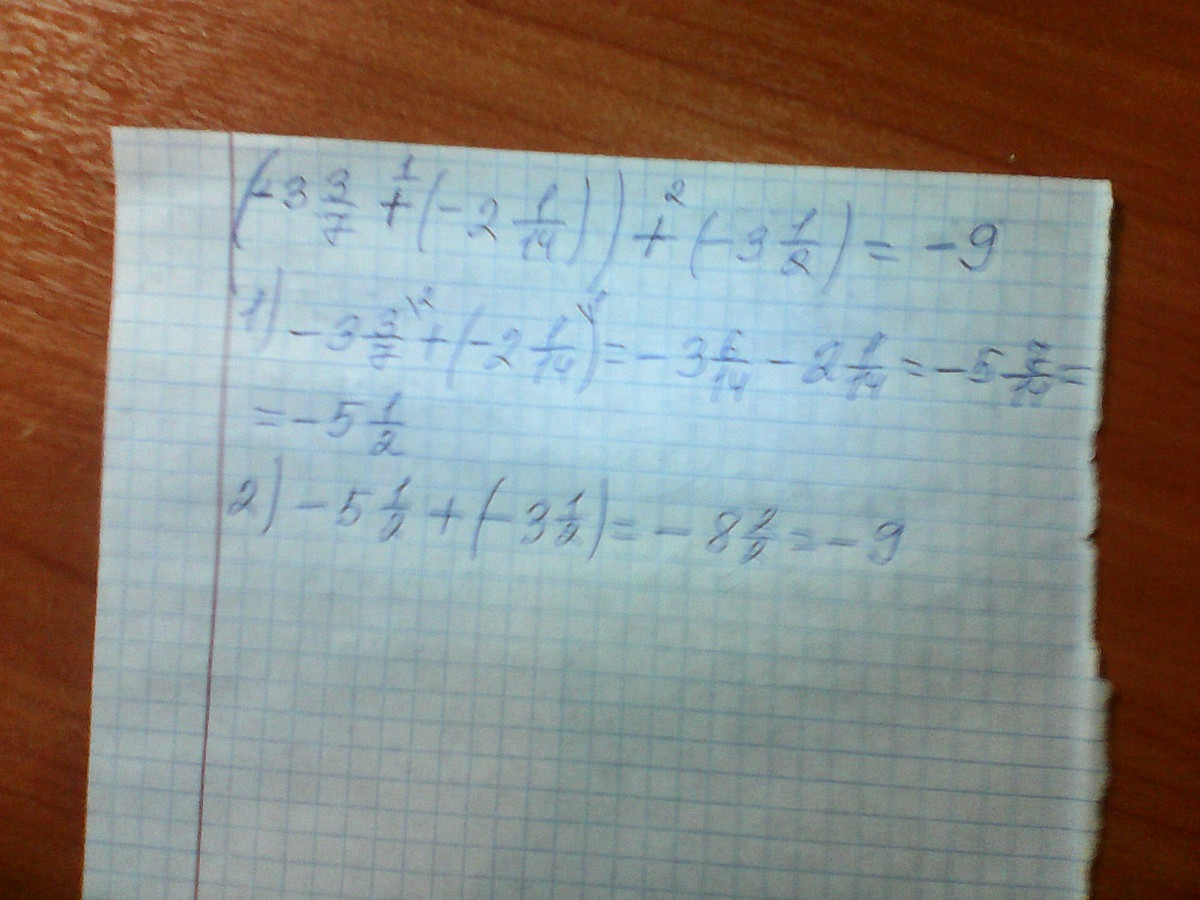 (-3 3/7 +¹ (-2 1/14)) +² (-3 1/2) = -9
1) -3 3/7 \² + (-2 1/14 \¹) = -3 6/14 - 2 1/14 = -5 7/14 =
= -5 1/2
2) -5 1/2 + (-3 1/2) = -8 2/2 = -9